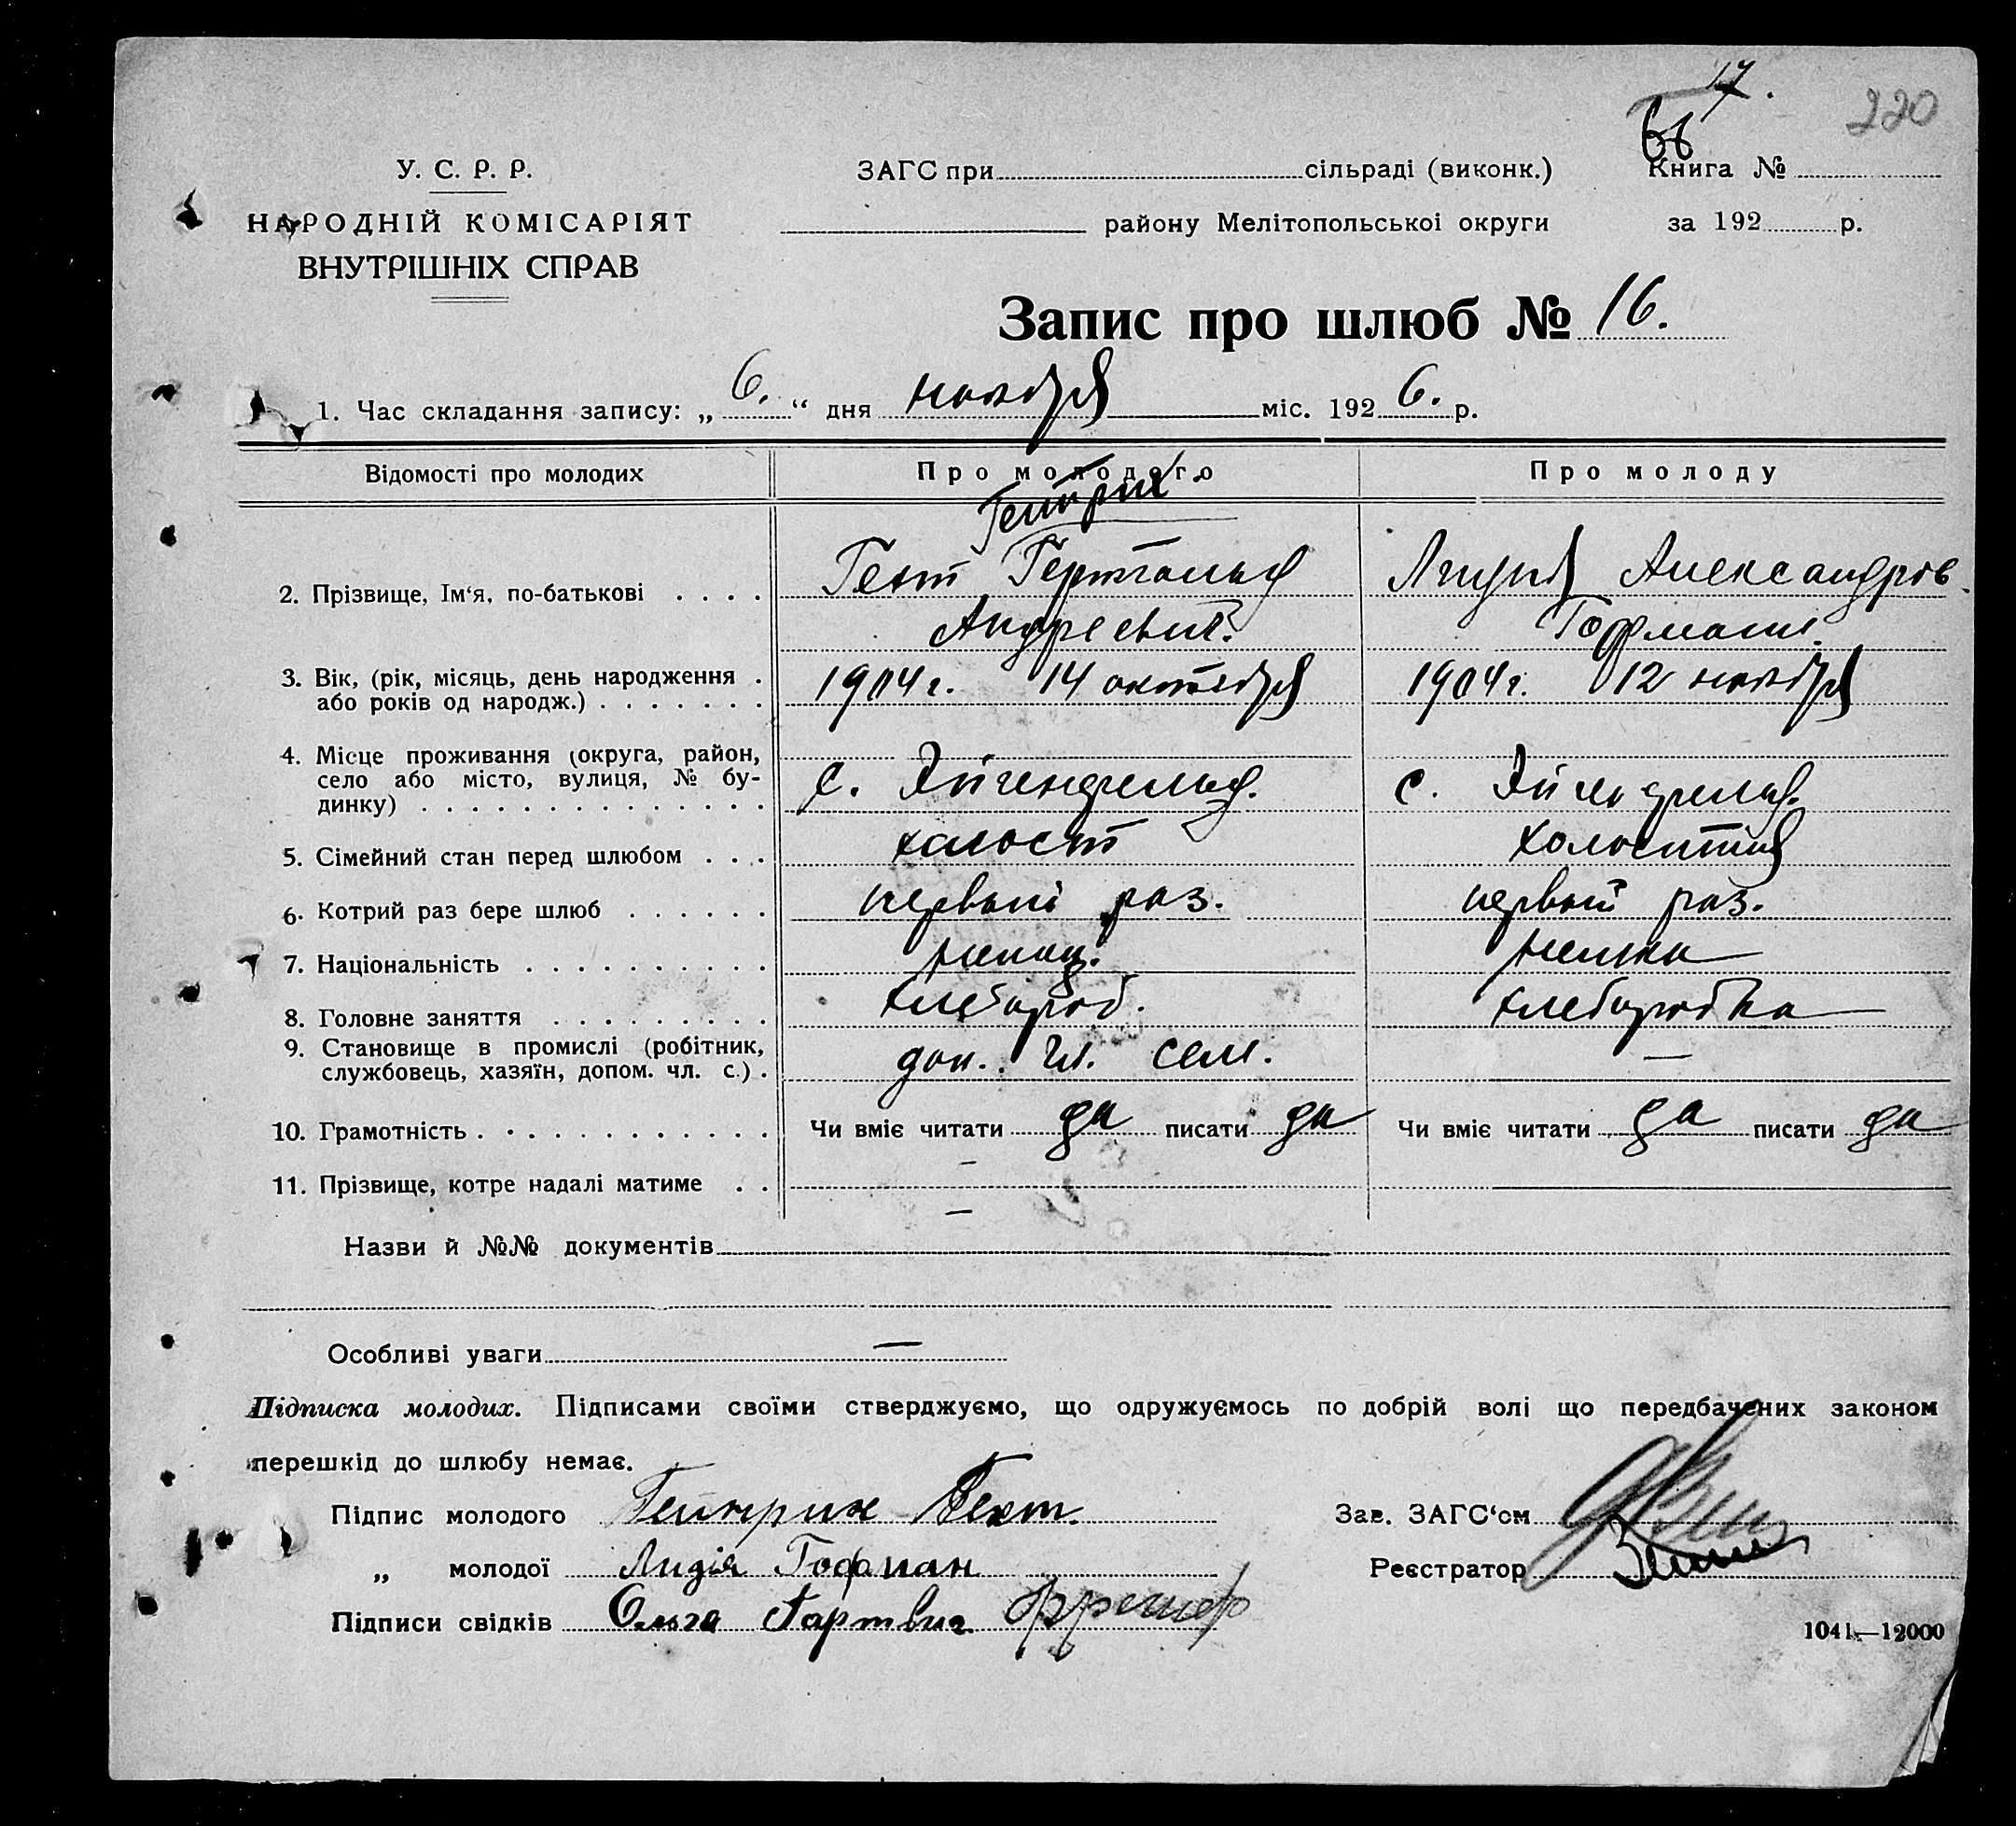 17.
66
220
У. С. Р. Р.
ЗАГС при сільраді (виконк.)
Книга №
НАРОДНІЙ КОМІСАРІЯТ
району Мелітопольської округи
за 192 р.
ВНУТРІШНІХ СПРАВ
Запис про шлюб № 16.
1. Час складання запису: „6.“ дня ноября міс. 1926. р.
Відомості про молодих
Про молодого
Про молоду
Гейнрих
2. Прізвище, Ім'я, по-батькові . . . .
Гехт
Андреевич.
Лидия Александров.
Гофман.
3. Вік, (рік, місяць, день народження .
або років од народж.) . . . . . . .
1904 г. 14 октября
1904 г. 12 ноября
4. Місце проживання (округа, район,
село або місто, вулиця, № бу-
динку) . . . . . . . . . . . . . .
с. Эйгенфельд.
с. Эйгенфельд.
5. Сімейний стан перед шлюбом . . .
холост
6. Котрий раз бере шлюб . . . . . .
первый раз.
первый раз.
7. Національність . . . . . . . . . .
немец.
немка
8. Головне заняття . . . . . . . . .
хлебороб.
хлеборобка
9. Становище в промислі (робітник,
службовець, хазяїн, допом. чл. с.) .
доп. чл. сем.
—
10. Грамотність . . . . . . . . . . . .
Чи вміє читати да писати да
Чи вміє читати да писати да
11. Прізвище, котре надалі матиме . .
—
Назви й №№ документів —
Особливі уваги —
Підписка молодих. Підписами своїми стверджуємо, що одружуємось по добрій волі що передбачених законом
перешкід до шлюбу немає.
Підпис молодого Гейнрих Гехт.
Зав. ЗАГС'ом
„ молодої Лидія Гофман
Реєстратор
Підписи свідків Ольга Гартвиг
1041—12000